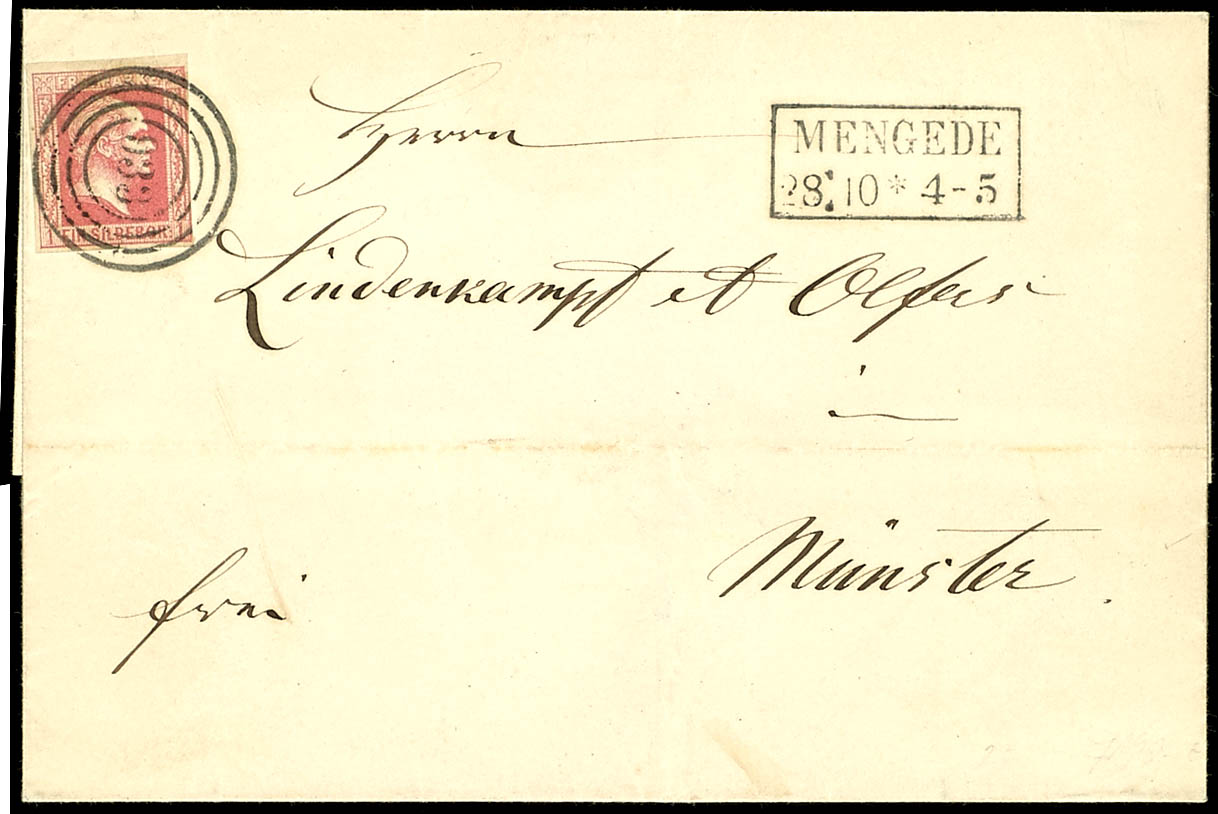 FREIMARKE
1 EIN SILBERGR: 1
MENGEDE
28. 10 * 4-5
Herrn
Lindenkampf et Olfers
in
Münster.
frei